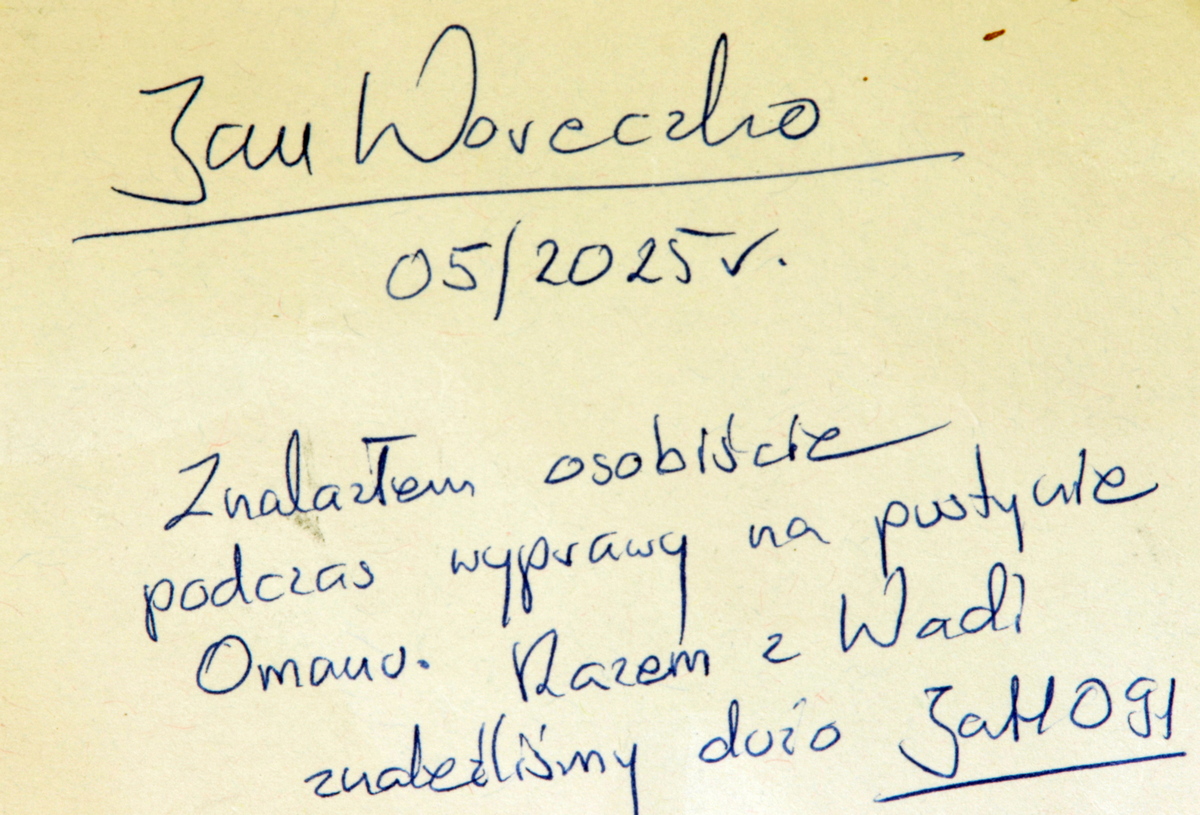 Jan Woreczko
05/2025 r.
Znalazłem osobiście
podczas wyprawy na pustynie
Omanu. Razem z Wadi
znaleźliśmy dużo JaH 091